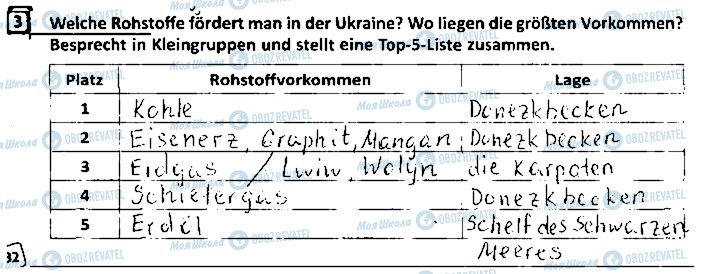 3 Welche Rohstoffe fördert man in der Ukraine? Wo liegen die größten Vorkommen?
Besprecht in Kleingruppen und stellt eine Top-5-Liste zusammen.
Platz Rohstoffvorkommen Lage
1 Kohle Donezkbecken
2 Eisenerz, Graphit, Mangan Donezkbecken
3 Erdgas / Lwiw, Wolyn die Karpaten
4 Schiefergas Donezkbecken
5 Erdöl Schelf des Schwarzen
Meeres
32
Моя Школа OBOZREVATEL